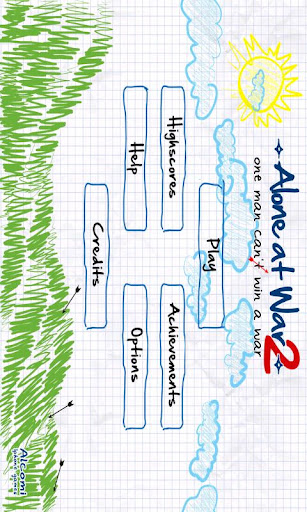 Alone at War 2
one man can't win a war
Play
Highscores
Achievements
Help
Options
Credits
Alcomi